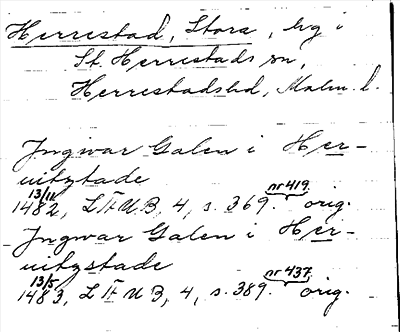 Herrestad, Stora, hg i
St. Herrestads sn,
Herrestads hd, Malm. l.
Ingwar Galen i Her-
uitzstade
13/11 1482, LÄUB, 4, s. 369. nr 419. orig.
Ingwar Galen i Her-
uitzstade
13/5 1483, LÄUB, 4, s. 389. nr 437. orig.